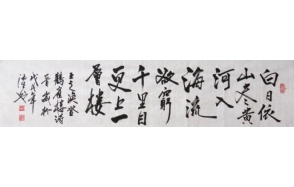 白日依
山尽黄
河入
海流
欲窮
千里目
更上一
層楼
王之涣登
鹳雀楼诗
戊戌年